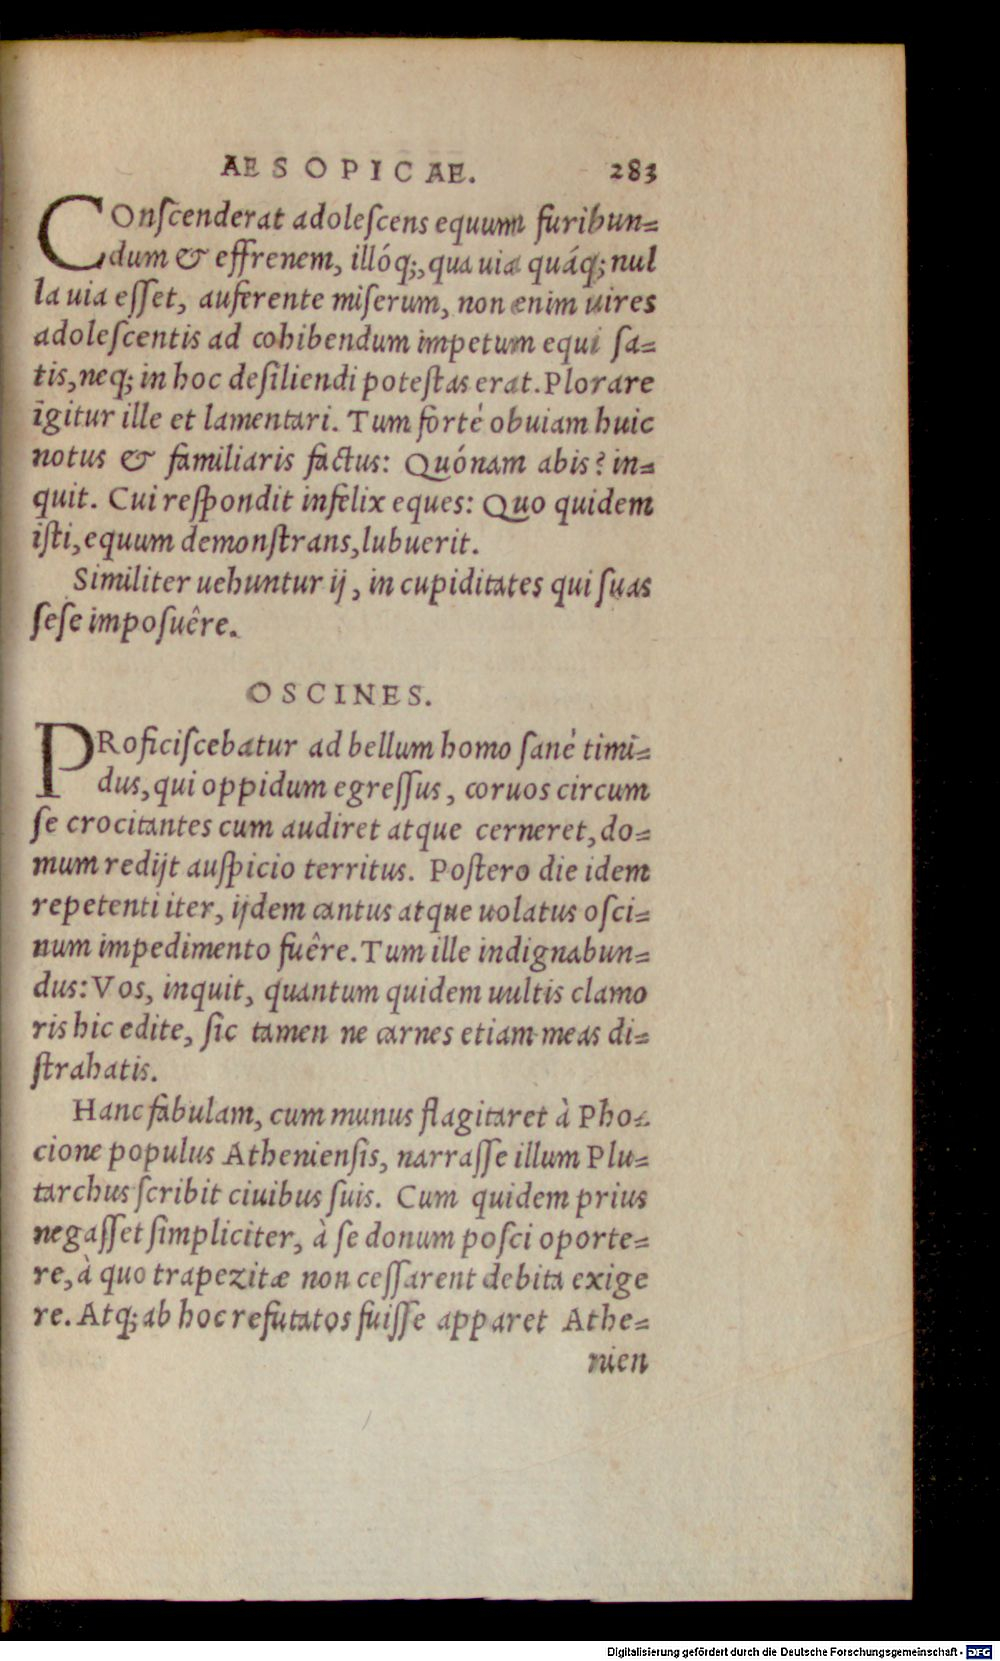 AESOPICAE. 283
COnſcenderat adoleſcens equum furibun=
dum & effrenem, illóq;, qua uia quáq; nul
la uia eſſet, auferente miſerum, non enim uires
adoleſcentis ad cohibendum impetum equi ſa=
tis, neq; in hoc deſiliendi poteſtas erat. Plorare
igitur ille et lamentari. Tum forté obuiam huic
notus & familiaris factus: Quónam abis? in=
quit. Cui reſpondit infelix eques: Quo quidem
iſti, equum demonſtrans, lubuerit.
Similiter uehuntur ij, in cupiditates qui ſuas
ſeſe impoſuêre.
OSCINES.
PRoficiſcebatur ad bellum homo ſané timi=
dus, qui oppidum egreſſus, coruos circum
ſe crocitantes cum audiret atque cerneret, do=
mum redijt auſpicio territus. Poſtero die idem
repetenti iter, ijdem cantus atque uolatus oſci=
num impedimento fuêre. Tum ille indignabun=
dus: Vos, inquit, quantum quidem uultis clamo
ris hic edite, ſic tamen ne carnes etiam meas di=
ſtrahatis.
Hanc fabulam, cum munus flagitaret à Pho=
cione populus Athenienſis, narraſſe illum Plu=
tarchus ſcribit ciuibus ſuis. Cum quidem prius
negaſſet ſimpliciter, à ſe donum poſci oporte=
re, à quo trapezitæ non ceſſarent debita exige
re. Atq; ab hoc refutatos fuiſſe apparet Athe=
nien
Digitalisierung gefördert durch die Deutsche Forschungsgemeinschaft - DFG